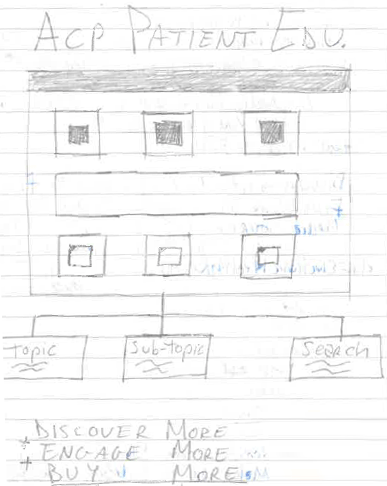 ACP PATIENT EDU.
Topic Sub-topic Search
DISCOVER MORE
+ ENGAGE MORE
+ BUY MORE